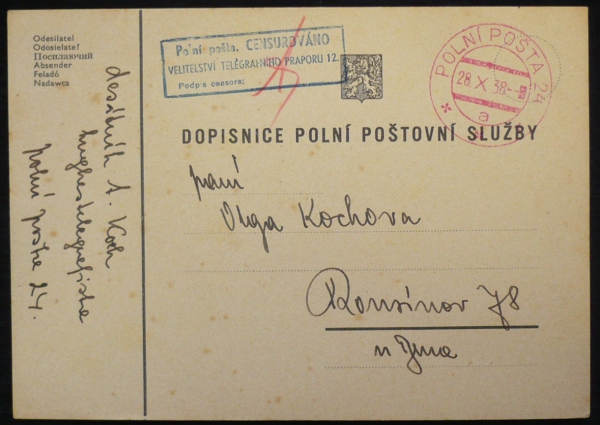 Odesílatel
Odosielateľ
Посилаючий
Absender
Feladó
Nadawca
desátník A. Koch
hughestelegrafista
polní pošta 24.
Polní pošta. CENSUROVÁNO
VELITELSTVÍ TELEGRAFNÍHO PRAPORU 12.
Podpis censora:
POLNÍ POŠTA 24
28. X. 38.
a
DOPISNICE POLNÍ POŠTOVNÍ SLUŽBY
paní
Olga Kochova
Rousínov 78
u Brna